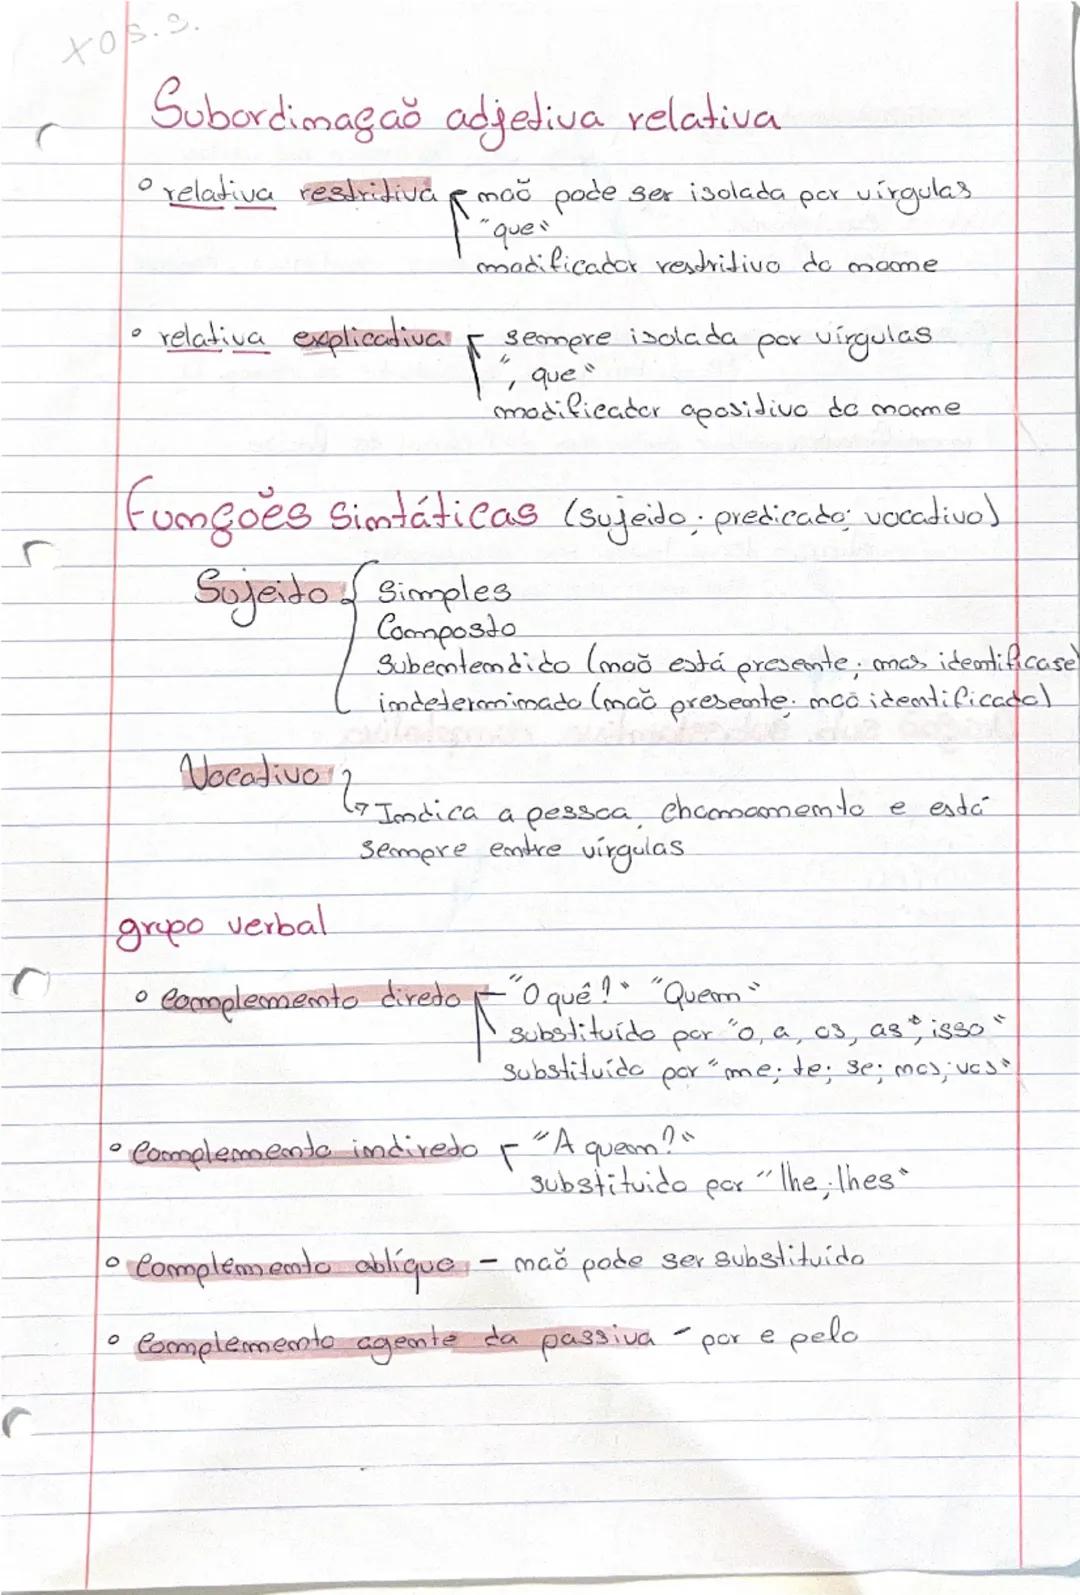 Subordinação adjetiva relativa
° relativa restritiva não pode ser isolada por vírgulas
"que"
modificador restritivo do nome
° relativa explicativa sempre isolada por vírgulas
", que"
modificador apositivo do nome
Funções Sintáticas (sujeito; predicado; vocativo)
Sujeito { Simples
Composto
Subentendido (não está presente; mas identificase)
indeterminado (não presente; não identificado)
Vocativo
↳ Indica a pessoa, chamamento e está
sempre entre vírgulas
grupo verbal
° Complemento direto "O quê?" "Quem"
substituído por "o, a, os, as", isso"
substituído por "me; te; se; nos; vos"
° Complemento indireto "A quem?"
substituído por "lhe; lhes"
° Complemento oblíquo - não pode ser substituído
° Complemento agente da passiva - por e pelo